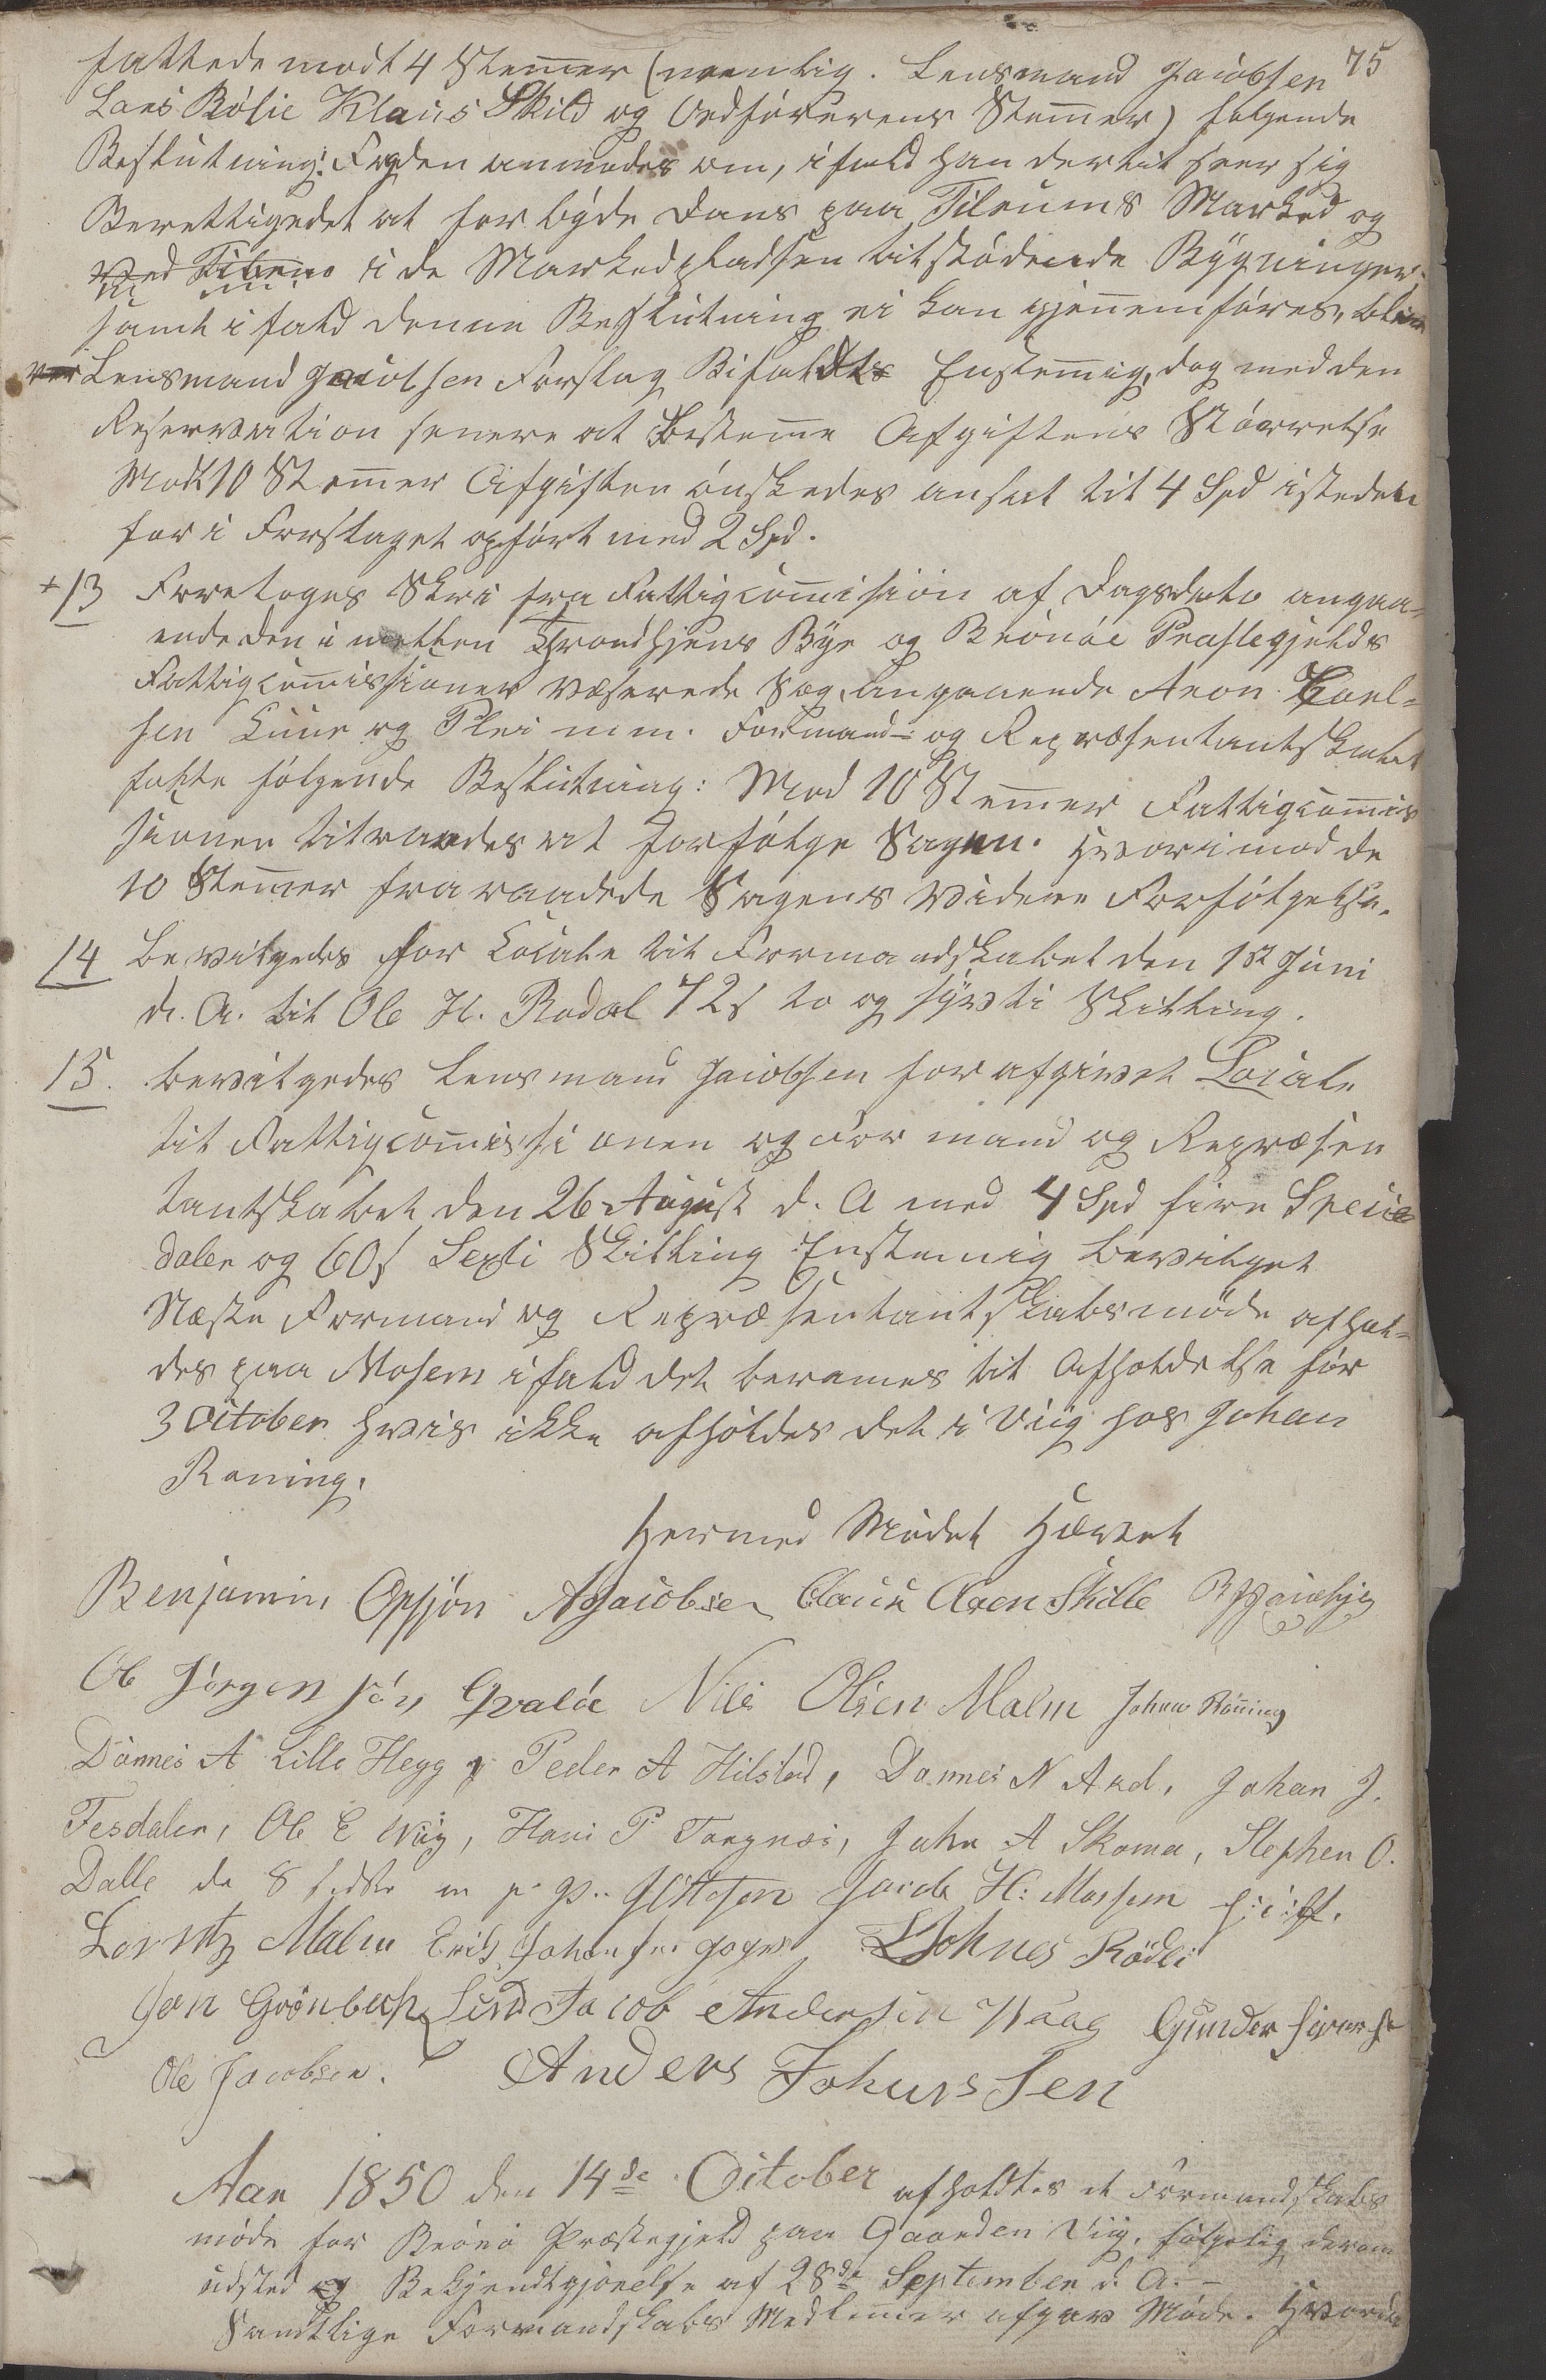 75
fattede modt 4 Stemer (nemlig. Lensmand Jacobsen
Lars Bölie Klaus Skild og Ordförerens Stemer) følgende
Beslutning: Fogden anmodes om, ifald han dertil seer sig
Berettigedet at forbyde Dans paa Tilrums Marked og
ved Tilrems i de Markedpladsen tilstödende Bÿgninger,
samt ifald denne Beslutning ei kan gjenemföres, bleve
Lensmand Jacobsen Forslag Bifaldt Enstemig, dog med den
Reservation senere at Besteme Afgiftens Större lse
Modt 10 Stemer Afgiften önskedes ansat til 4 Spd isteden
for i Forslaget opfört med 2 Spd.
+13 Foretoges Skri fra Fattigcomision af Dagsdato angaa-
ende den i mellem Trondhjens Bye og Brönöe Præstegjelds
Fattigcomissioner værende Sag, Angaaende Aron
sen og Plei m.m. Formand- og Repræsentantskabet
fatte følgende Beslutning: Mod 10 Stemer Fattigcomis
sionen tilraades at forfölge Sagen. Hvorimod de
10 Stemer fraraadede Sagens Videre Forfölgelse.
14 Bevilgedes for Locale til Formandskabet den 1st Juni
d. A. til Ole H. Rodal 72s to og sÿvti Skilling.
15. bevilgedes Lensmand Jacobsen for afgivet Locale
til Fattigcomissionen og For mand og Repræsen
tantskabet den 26 August d. A med 4 Spd fire Specie
daler og 60s Sexti Skilling Enstemig bevilget
Næste Formand og Repræsentantskabsmöde afhol-
des paa Mosem ifald det berames til Afholdelse för
3 October hvis ikke afholdes det i Viig hos Johan
Roning.
Hermed Mödet Hævet
Benjamin Opsjön AJacobsen Claus Aren Skille
Ole Jörgen sön Qvalöe Nils Olsen Malm Johan Röning
Dönnes A Lille Hegg Peder A Hilstad, Dannes N Aad, Johan J.
Tesdalen, Ole E Wiig, Hans P Torgnæs, John A Skoma, Stephen O.
Dalle de 8 sidste m p. P. Jacob H: Mossem
Lorntz Malm Erich Johansen Johnes Rödli
Jon Grönbech Lund Jacob Andersen Haag Gunder
Ole Jacobsen. Anders Johnssen
Aar 1850 den 14de October afholdtes et Formandskabs
möde for Brönö Præstegjeld paa Gaarden Viig, følgelig derom
udsted og Bekjendtgjörelse af 28de September d. A. -
Samtlige Formandskabs Medlemer afgav Möde. Hvorda